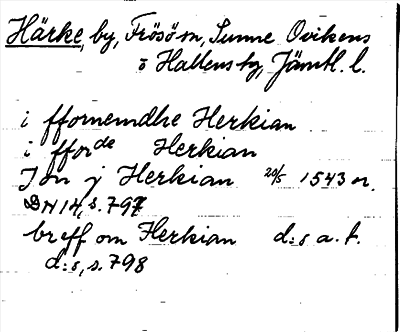 Härke, by, Frösö sn, Sunne Ovikens
o Hallens tg, Jämtl. l.
i ffornemdhe Herkian
i fforde Herkian
Jon j Herkian 20/5 1543 or.
DN 14, s. 797
breff om Herkian d:s a. t.
d:s, s. 798